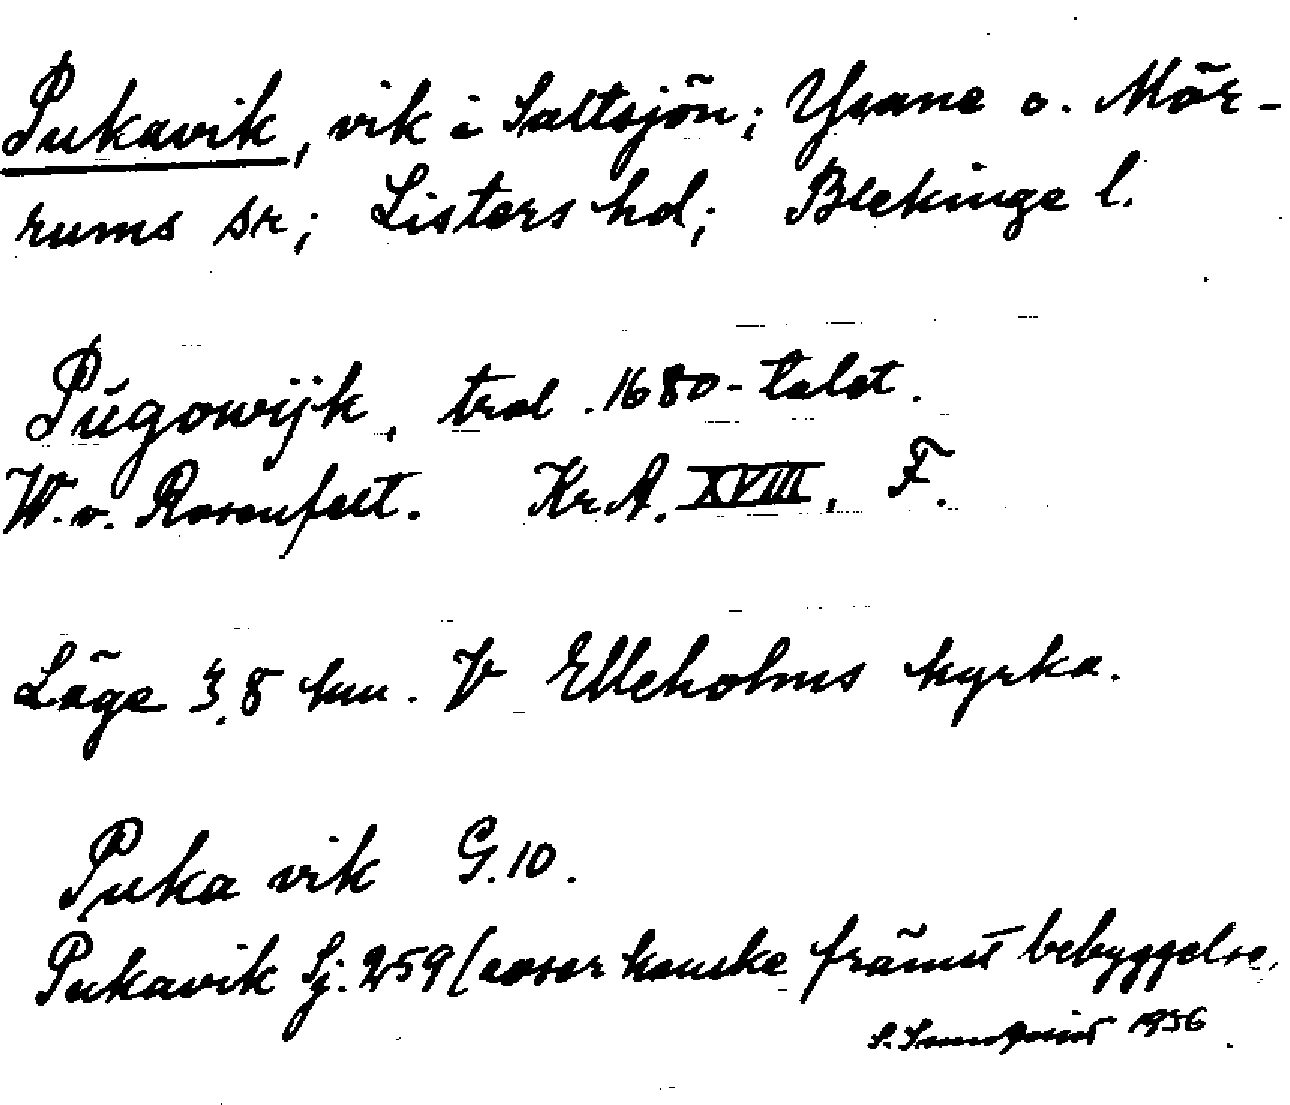 Pukavik, vik i Saltsjön; Ysane o. Mör-
rums sr; Listers hd; Blekinge l.
Pŭgowijk, trol. 1680-talet.
W. v. Rosenfelt. Kr A. XVIII, F.
Läge 3,8 km. V Elleholms kyrka.
Puka vik G.10.
Pukavik Sj. 259 (avser kanske främst bebyggelse,
1956